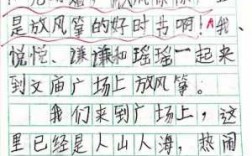 是放风筝的好时节啊！我、
悦悦、谦谦和瑶瑶一起来
到文庙广场上放风筝。
我们来到广场上，这
里已经是人山人海，热闹